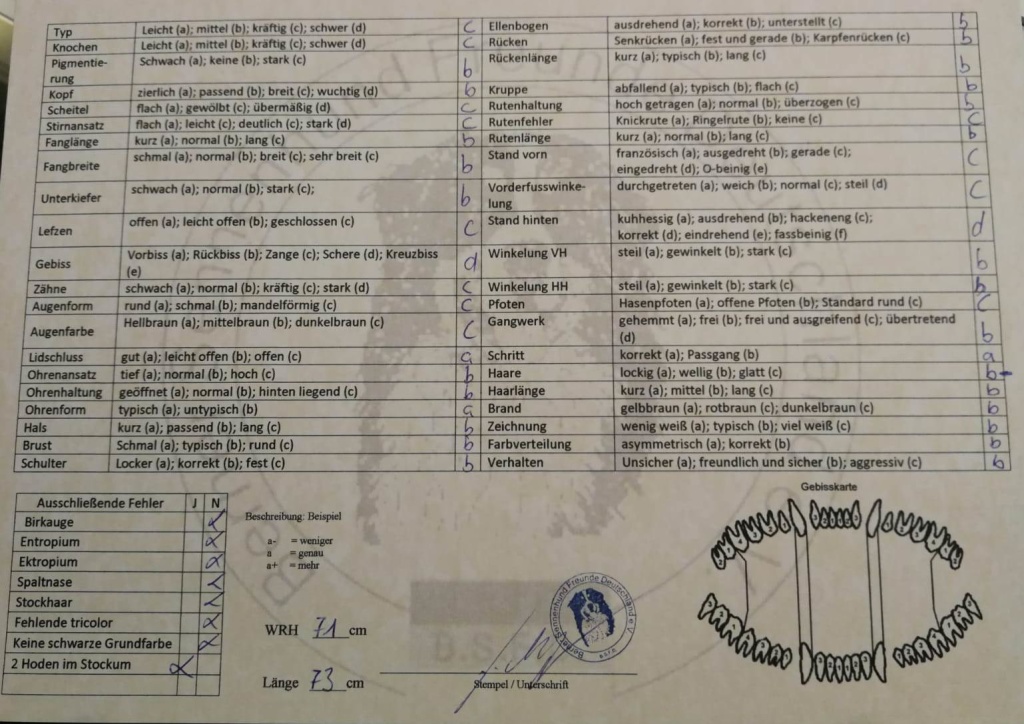 Typ Leicht (a); mittel (b); kräftig (c); schwer (d) c
Knochen Leicht (a); mittel (b); kräftig (c); schwer (d) c
Pigmentie- Schwach (a); keine (b); stark (c) b
rung
Kopf zierlich (a); passend (b); breit (c); wuchtig (d) b
Scheitel flach (a); gewölbt (c); übermäßig (d) c
Stirnansatz flach (a); leicht (c); deutlich (c); stark (d) c
Fanglänge kurz (a); normal (b); lang (c) b
Fangbreite schmal (a); normal (b); breit (c); sehr breit (c) b
Unterkiefer schwach (a); normal (b); stark (c); b
Lefzen offen (a); leicht offen (b); geschlossen (c) c
Gebiss Vorbiss (a); Rückbiss (b); Zange (c); Schere (d); Kreuzbiss d
(e)
Zähne schwach (a); normal (b); kräftig (c); stark (d) c
Augenform rund (a); schmal (b); mandelförmig (c) c
Augenfarbe Hellbraun (a); mittelbraun (b); dunkelbraun (c) c
Lidschluss gut (a); leicht offen (b); offen (c) a
Ohrenansatz tief (a); normal (b); hoch (c) b
Ohrenhaltung geöffnet (a); normal (b); hinten liegend (c) b
Ohrenform typisch (a); untypisch (b) a
Hals kurz (a); passend (b); lang (c) b
Brust Schmal (a); typisch (b); rund (c) b
Schulter Locker (a); korrekt (b); fest (c) b
Ellenbogen ausdrehend (a); korrekt (b); unterstellt (c) b
Rücken Senkrücken (a); fest und gerade (b); Karpfenrücken (c) b
Rückenlänge kurz (a); typisch (b); lang (c) b
Kruppe abfallend (a); typisch (b); flach (c) b
Rutenhaltung hoch getragen (a); normal (b); überzogen (c) b
Rutenfehler Knickrute (a); Ringelrute (b); keine (c) c
Rutenlänge kurz (a); normal (b); lang (c) b
Stand vorn französisch (a); ausgedreht (b); gerade (c); c
eingedreht (d); O-beinig (e)
Vorderfusswinke- durchgetreten (a); weich (b); normal (c); steil (d) c
lung
Stand hinten kuhhessig (a); ausdrehend (b); hackeneng (c); d
korrekt (d); eindrehend (e); fassbeinig (f)
Winkelung VH steil (a); gewinkelt (b); stark (c) b
Winkelung HH steil (a); gewinkelt (b); stark (c) b
Pfoten Hasenpfoten (a); offene Pfoten (b); Standard rund (c) c
Gangwerk gehemmt (a); frei (b); frei und ausgreifend (c); übertretend b
(d)
Schritt korrekt (a); Passgang (b) a
Haare lockig (a); wellig (b); glatt (c) b+
Haarlänge kurz (a); mittel (b); lang (c) b
Brand gelbbraun (a); rotbraun (c); dunkelbraun (c) b
Zeichnung wenig weiß (a); typisch (b); viel weiß (c) b
Farbverteilung asymmetrisch (a); korrekt (b) b
Verhalten Unsicher (a); freundlich und sicher (b); aggressiv (c) b
Ausschließende Fehler J N
Birkauge
Entropium
Ektropium
Spaltnase
Stockhaar
Fehlende tricolor
Keine schwarze Grundfarbe
2 Hoden im Stockum
Beschreibung: Beispiel
a- = weniger
a = genau
a+ = mehr
WRH 71 cm
Länge 73 cm
Berner Sennenhund Freunde Deutschland e.V.
Stempel / Unterschrift
Gebisskarte